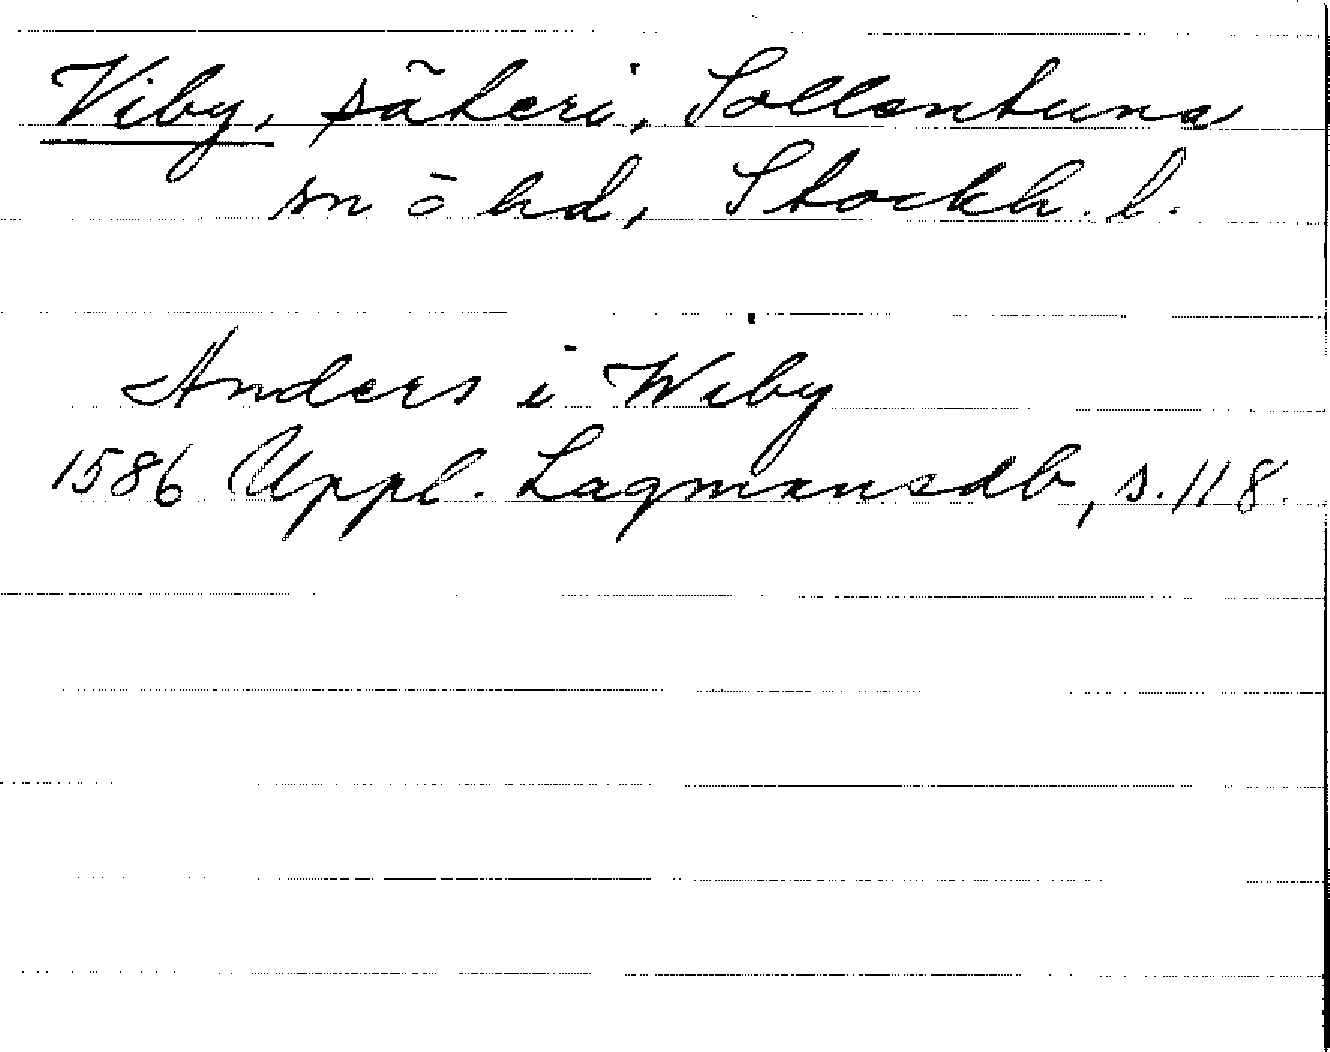 Viby, säteri, Sollentuna
sn o hd, Stockh. l.
Anders i Wiby
1586 Uppl. Lagmansdb, s. 118.